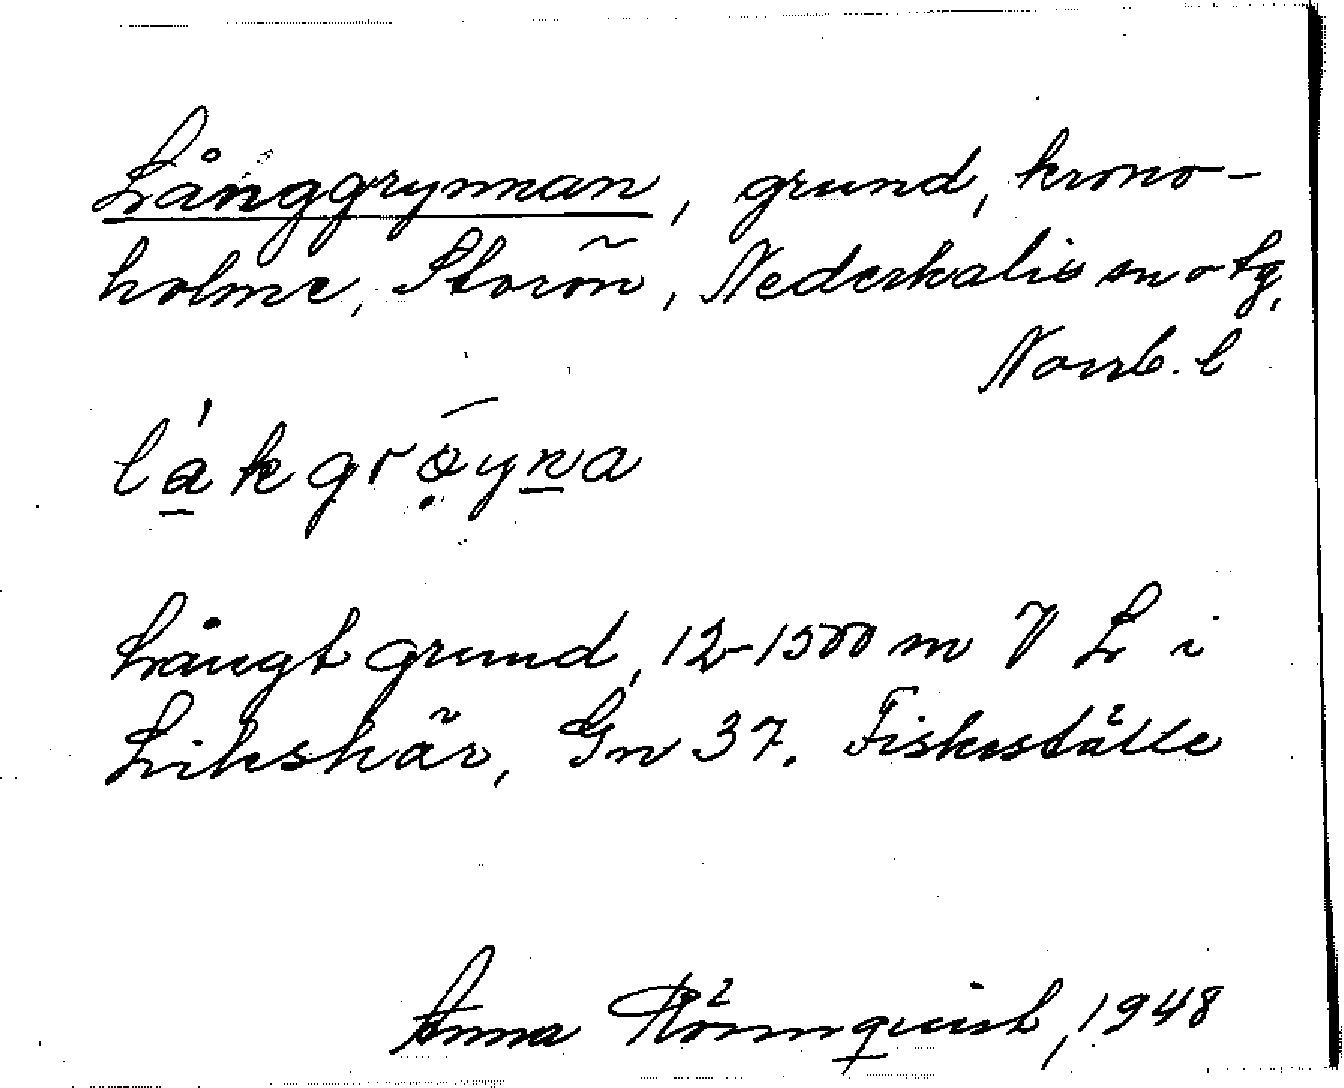 Långgrynnan, grund, krono-
holme, Storön, Nederkalix sn o tg,
Norrb. l
lákgrǫ̈̄yṉa
Långt grund, 12-1500 m V L i
Likskär, Gn 37. Fiskeställe
Anna Rönnquist, 1948